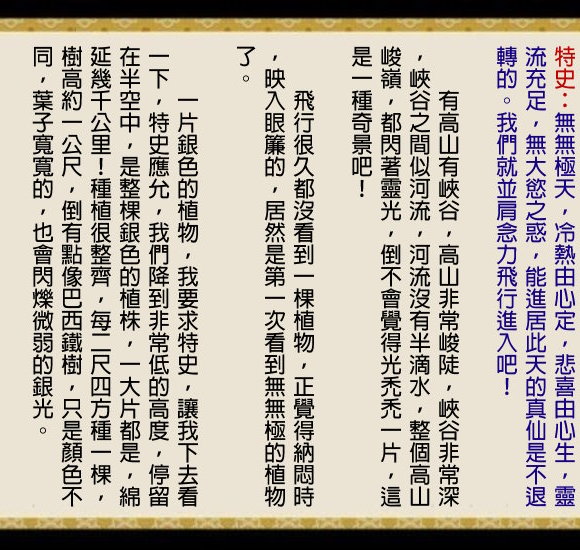 特史：無無極天，冷熱由心定，悲喜由心生，靈
流充足，無大慾之惑，能進居此天的真仙是不退
轉的。我們就並肩念力飛行進入吧！
有高山有峽谷，高山非常峻陡，峽谷非常深
，峽谷之間似河流，河流沒有半滴水，整個高山
峻嶺，都閃著靈光，倒不會覺得光禿禿一片，這
是一種奇景吧！
飛行很久都沒看到一棵植物，正覺得納悶時
，映入眼簾的，居然是第一次看到無無極的植物
了。
一片銀色的植物，我要求特史，讓我下去看
一下，特史應允，我們降到非常低的高度，停留
在半空中，是整棵銀色的植株，一大片都是，綿
延幾千公里！種植很整齊，每二尺四方種一棵，
樹高約一公尺，倒有點像巴西鐵樹，只是顏色不
同，葉子寬寬的，也會閃爍微弱的銀光。